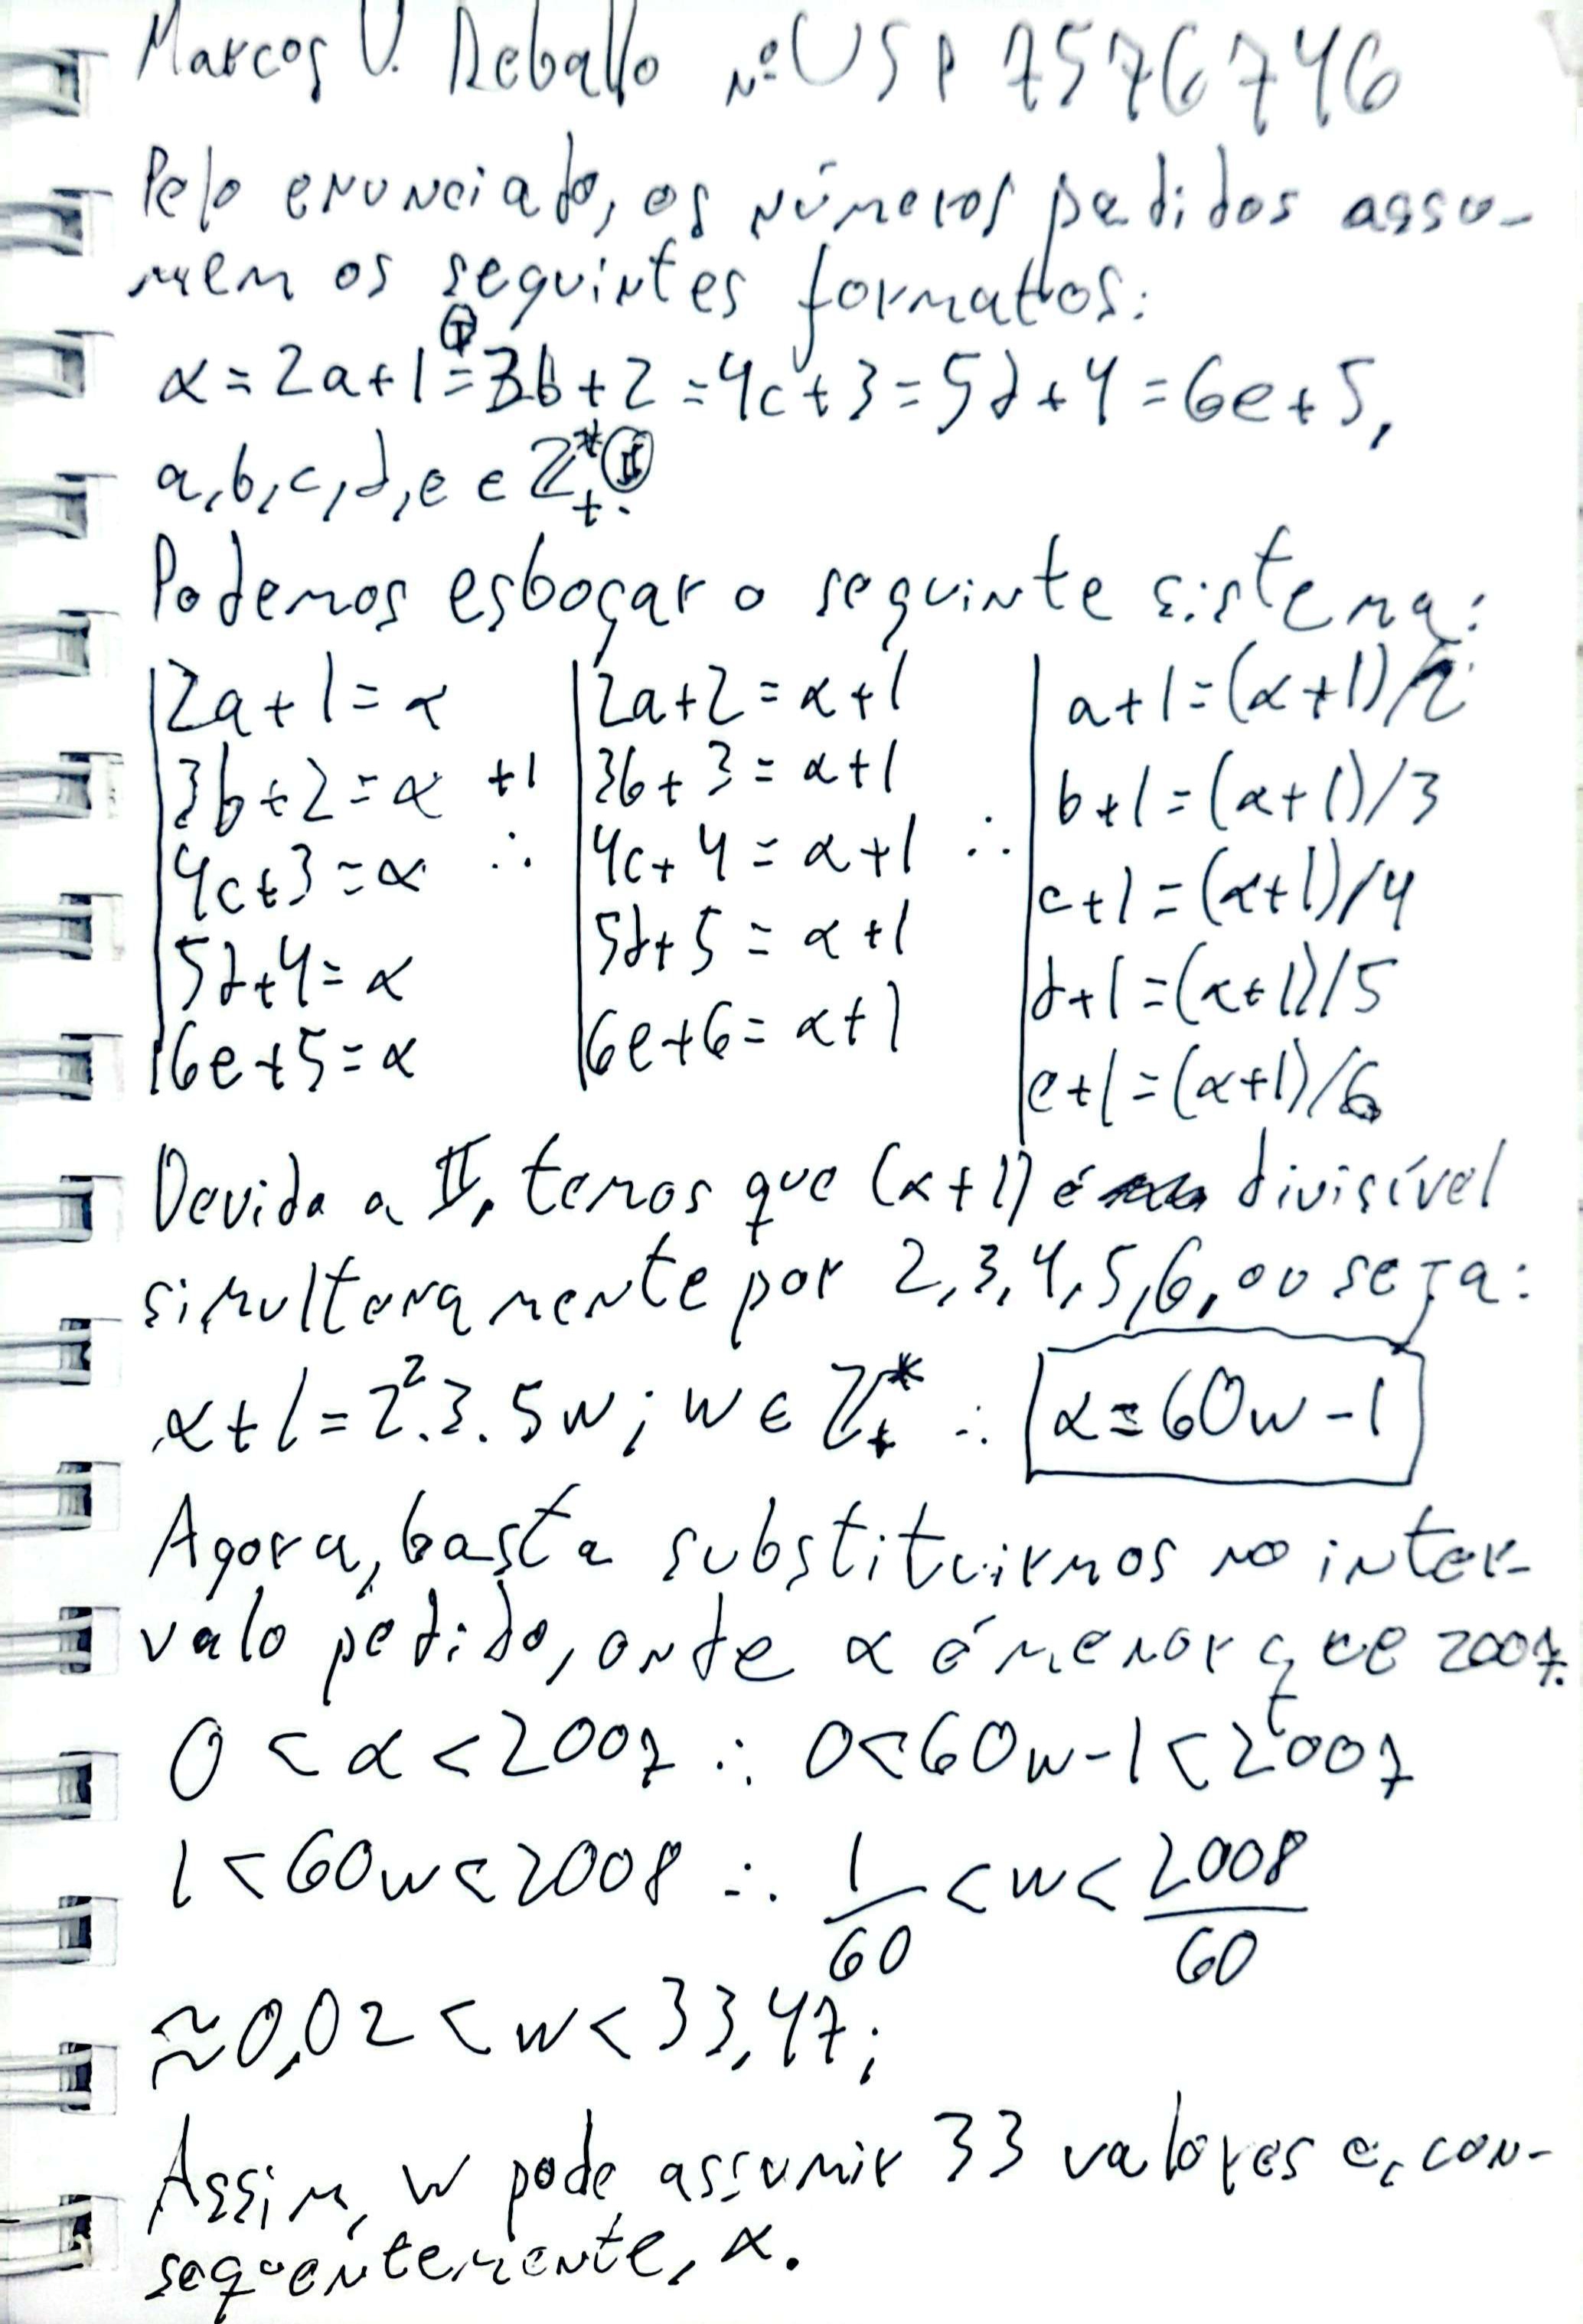 Marcos V. Reballo nº USP 7576746
Pelo enunciado, os números pedidos assu-
mem os seguintes formattos:
α = 2a+1 =Ⓘ 3b+2 = 4c+3 = 5d+4 = 6e+5,
a,b,c,d,e ∈ ℤ*₊. Ⓘ︎Ⓘ
Podemos esboçar o seguinte sistema:
|2a+1=α |2a+2=α+1 |a+1=(α+1)/2
|3b+2=α +1 |3b+3=α+1 |b+1=(α+1)/3
|4c+3=α ∴ |4c+4=α+1 ∴ |c+1=(α+1)/4
|5d+4=α |5d+5=α+1 |d+1=(α+1)/5
|6e+5=α |6e+6=α+1 |e+1=(α+1)/6
Devido a II, temos que (α+1) é divisível
simultanamente por 2,3,4,5,6, ou seja:
α+1=2².3.5w; w ∈ ℤ*₊ ∴ α=60w-1
Agora, basta substituirmos no inter-
valo pedido, onde α é menor que 2007.
0<α<2007 ∴ 0<60w-1<2007
1<60w<2008 ∴ 1/60 <w< 2008/60
≈0,02<w<33,47;
Assim, w pode assumir 33 valores e, con-
sequentemente, α.